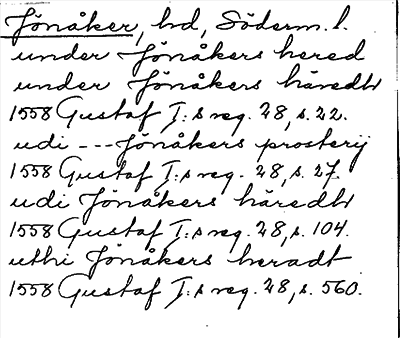 Jönåker, hd, Söderm. l.
under Jönåkers hered
under Jönåkers häredh
1558 Gustaf I:s reg. 28, s. 22.
udi --- Jönåkers prosterij
1558 Gustaf I:s reg. 28, s. 27.
udi Jönåkers häredh
1558 Gustaf I:s reg. 28, s. 104.
uthi Jönåkers heradt
1558 Gustaf I:s reg. 28, s. 560.